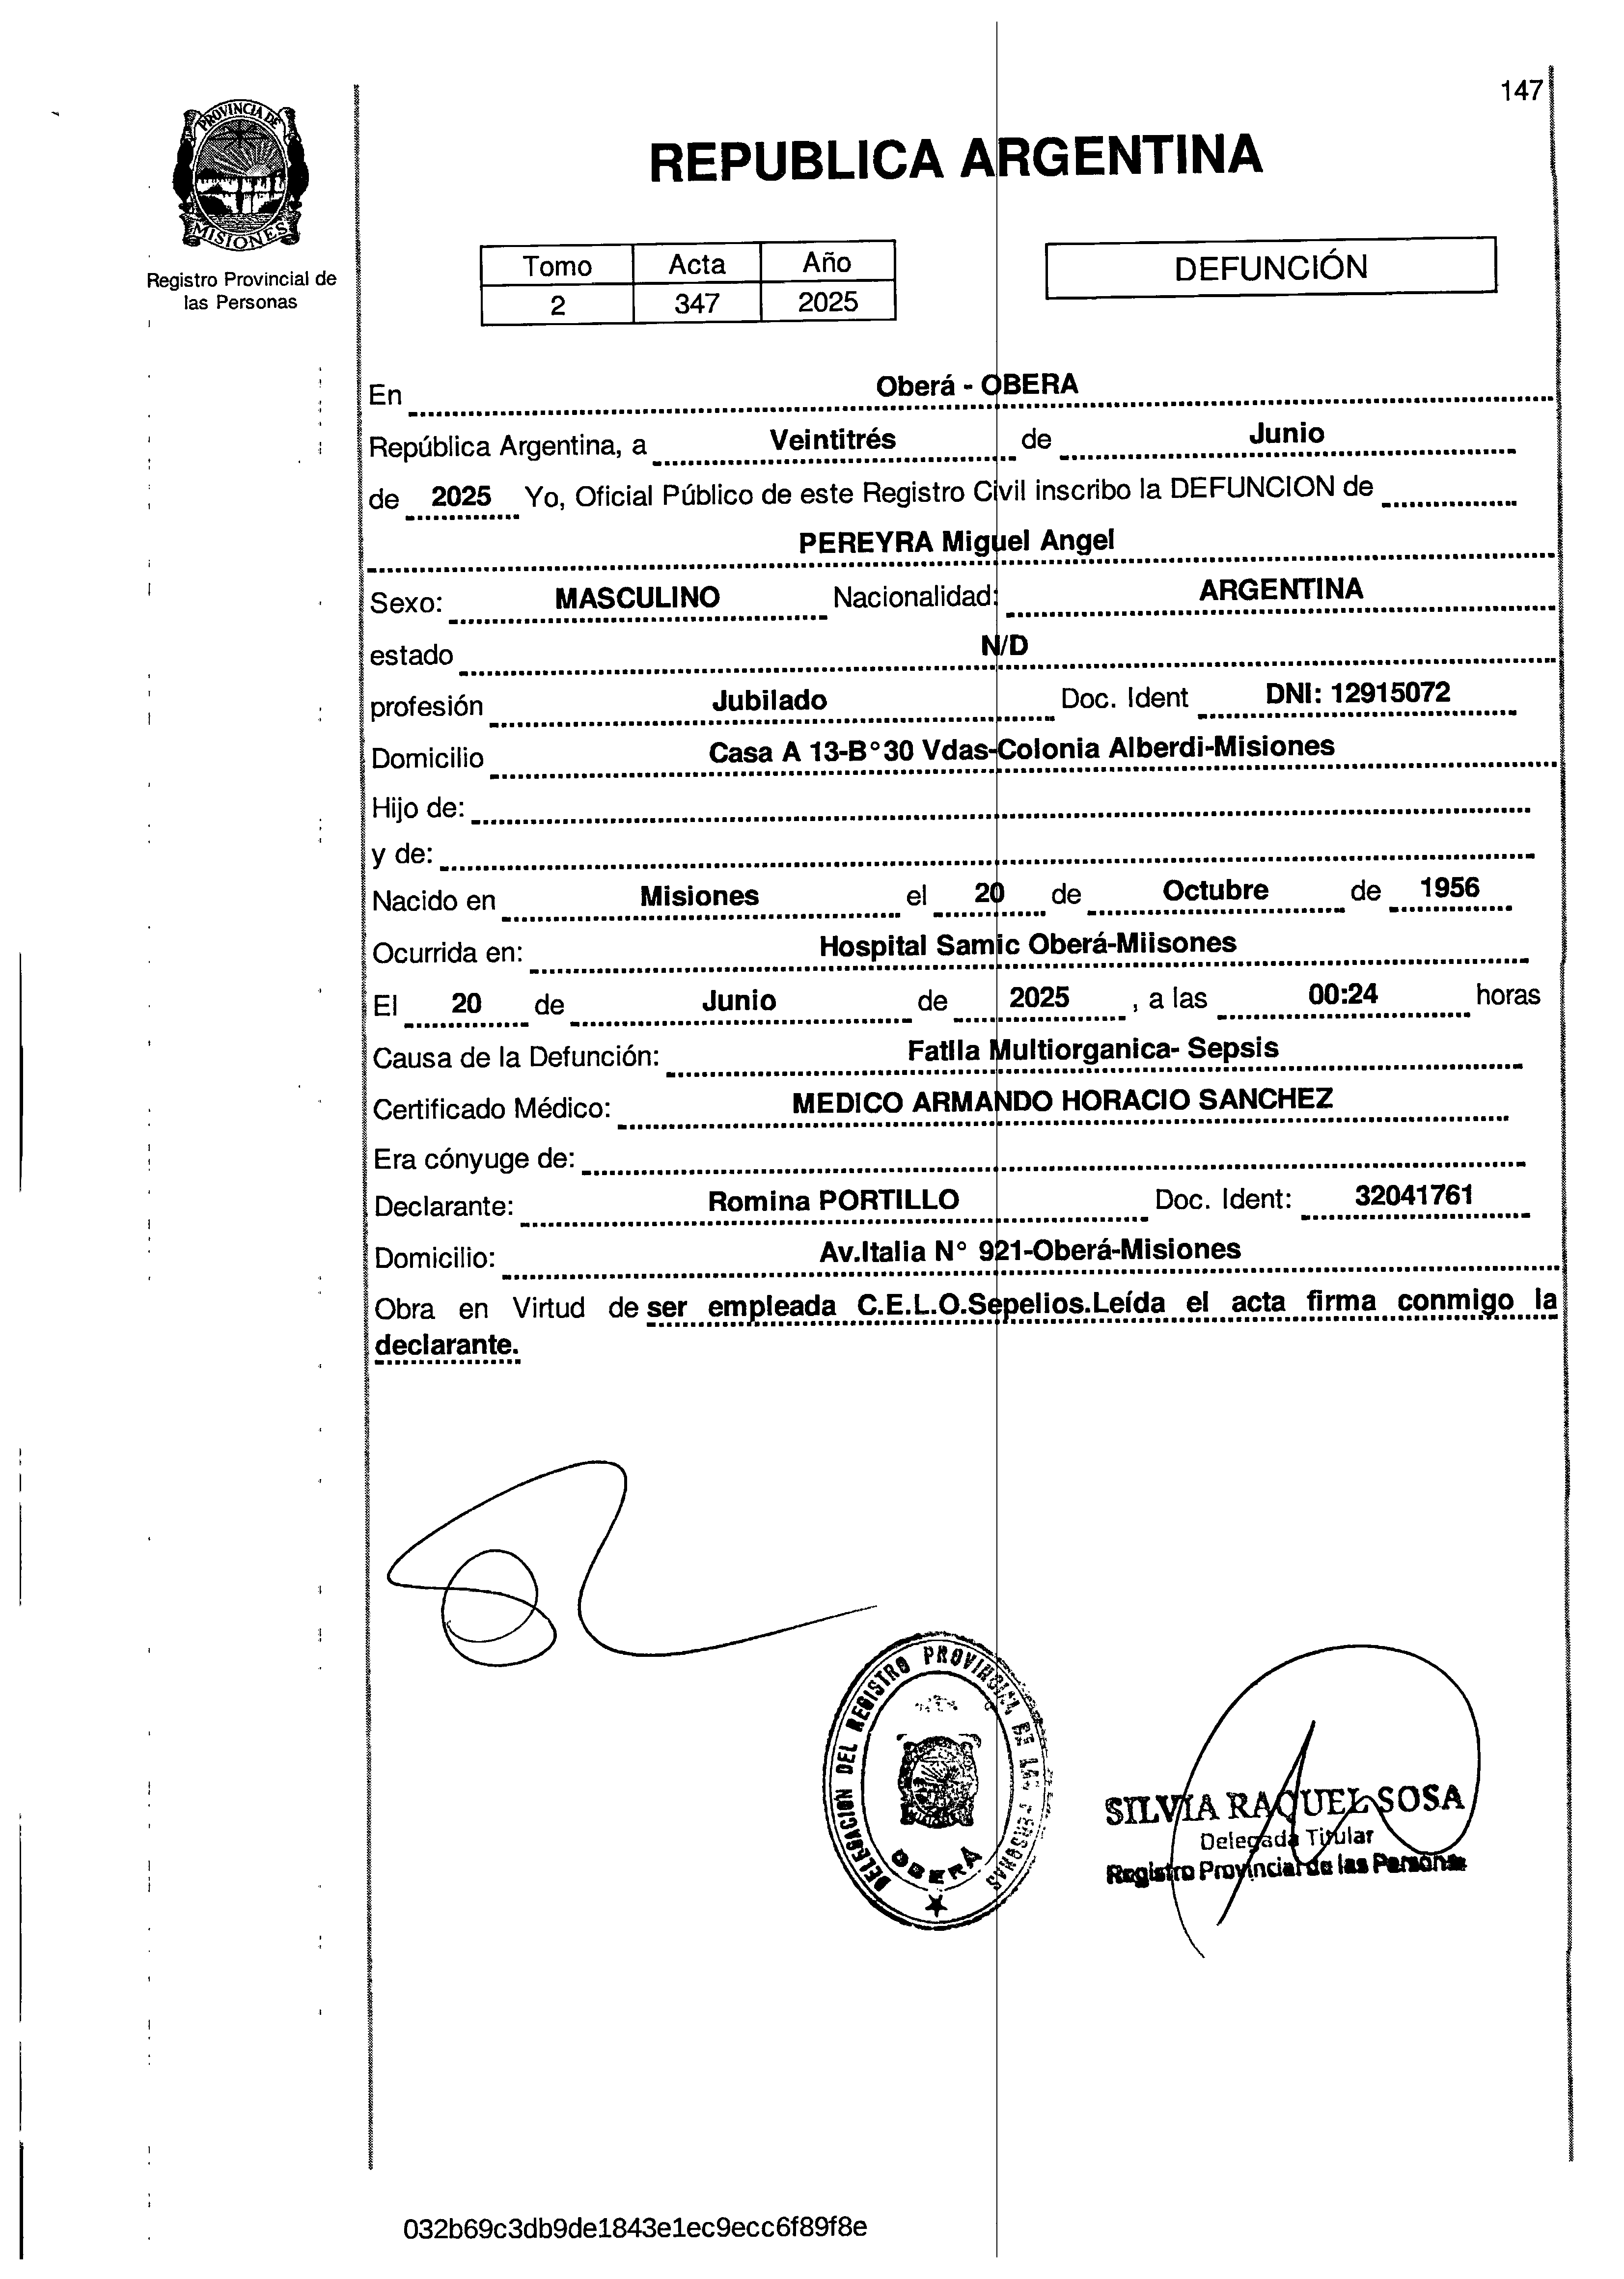 147
PROVINCIA DE
MISIONES
Registro Provincial de
las Personas
REPUBLICA ARGENTINA
Tomo Acta Año
2 347 2025
DEFUNCIÓN
En Oberá - OBERA
República Argentina, a Veintitrés de Junio
de 2025 Yo, Oficial Público de este Registro Civil inscribo la DEFUNCION de
PEREYRA Miguel Angel
Sexo: MASCULINO Nacionalidad: ARGENTINA
estado N/D
profesión Jubilado Doc. Ident DNI: 12915072
Domicilio Casa A 13-B°30 Vdas-Colonia Alberdi-Misiones
Hijo de:
y de:
Nacido en Misiones el 20 de Octubre de 1956
Ocurrida en: Hospital Samic Oberá-Miisones
El 20 de Junio de 2025 , a las 00:24 horas
Causa de la Defunción: Fatlla Multiorganica- Sepsis
Certificado Médico: MEDICO ARMANDO HORACIO SANCHEZ
Era cónyuge de:
Declarante: Romina PORTILLO Doc. Ident: 32041761
Domicilio: Av.Italia N° 921-Oberá-Misiones
Obra en Virtud de ser empleada C.E.L.O.Sepelios.Leída el acta firma conmigo la
declarante.
DELEGACION DEL REGISTRO PROVINCIAL DE LAS PERSONAS
OBERÁ
SILVIA RAQUEL SOSA
Delegada Titular
Registro Provincial de las Personas
032b69c3db9de1843e1ec9ecc6f89f8e